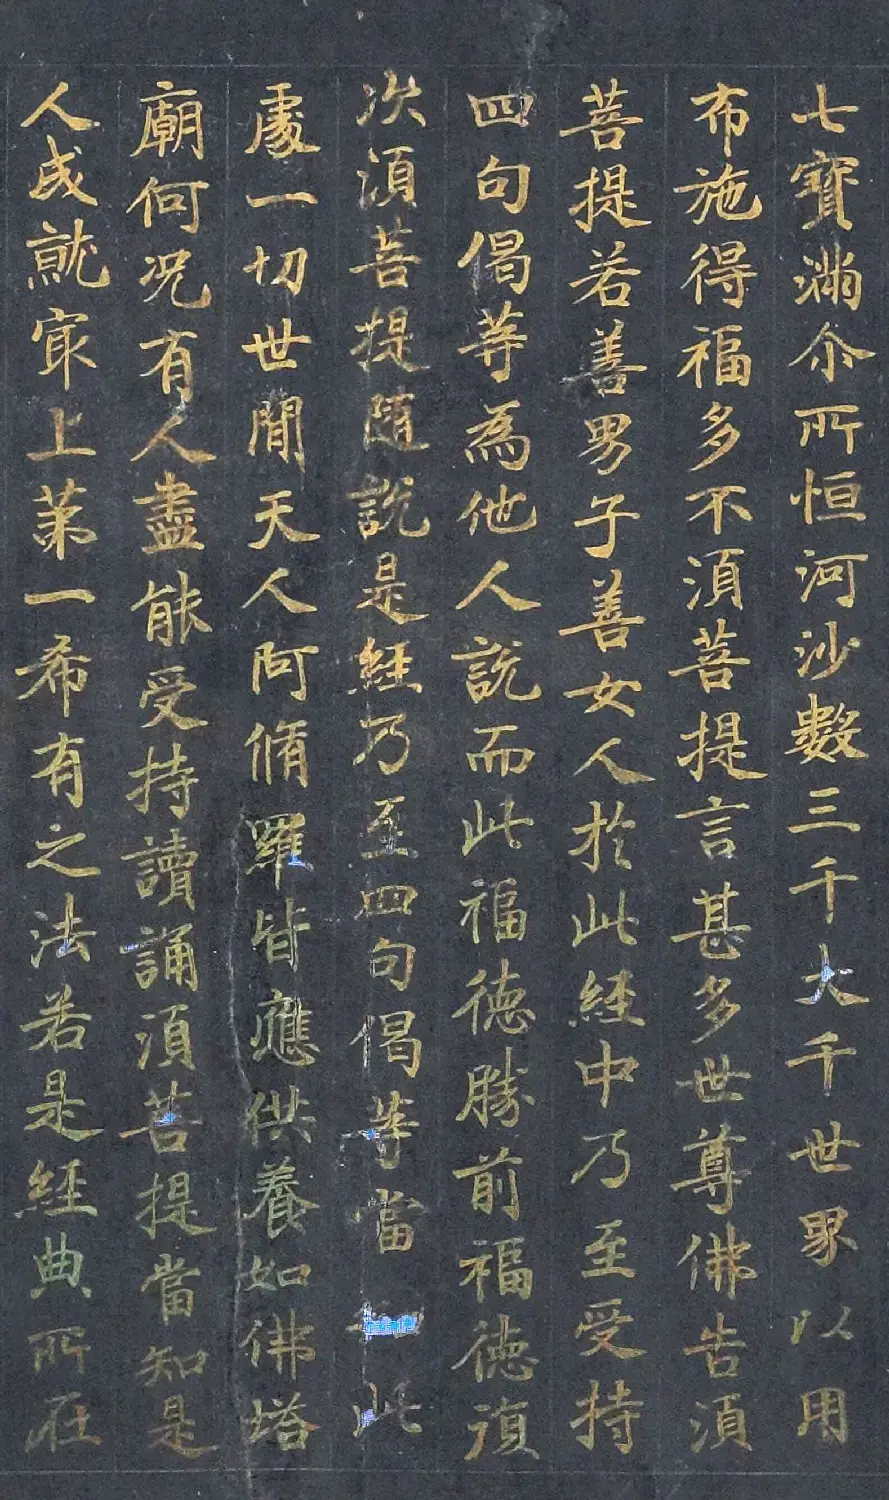 七寶滿尒所恒河沙數三千大千世界以用
布施得福多不須菩提言甚多世尊佛告須
菩提若善男子善女人於此經中乃至受持
四句偈等為他人說而此福德勝前福德復
次須菩提随說是經乃至四句偈等當知此
處一切世間天人阿脩羅皆應供養如佛塔
廟何況有人盡能受持讀誦須菩提當知是
人成就冣上苐一希有之法若是經典所在